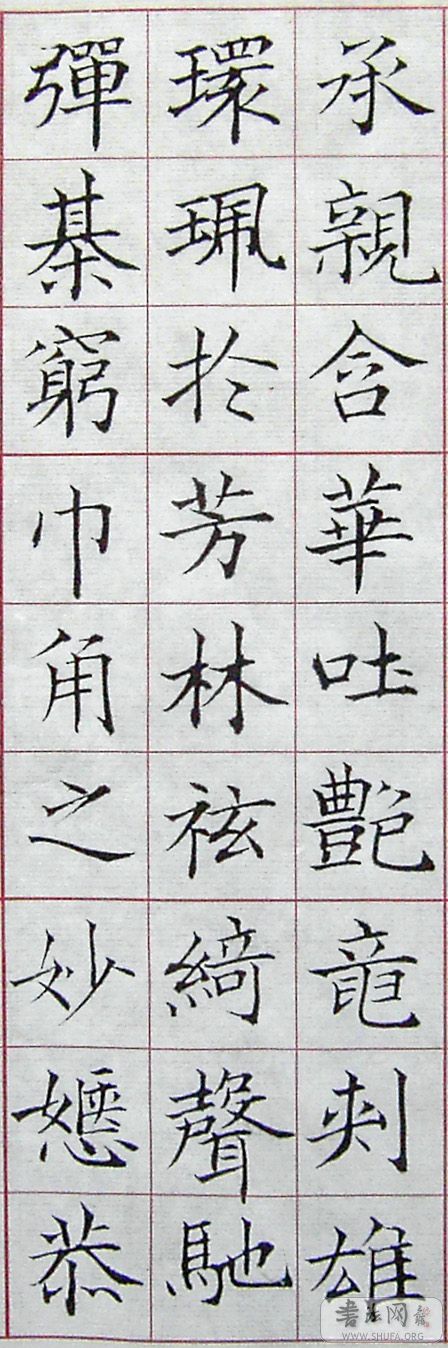 承親含華吐艷竜刺雄
環珮於芳林袨綺聲馳
彈棊窮巾角之妙嬺恭
书法网
WWW.SHUFA.ORG